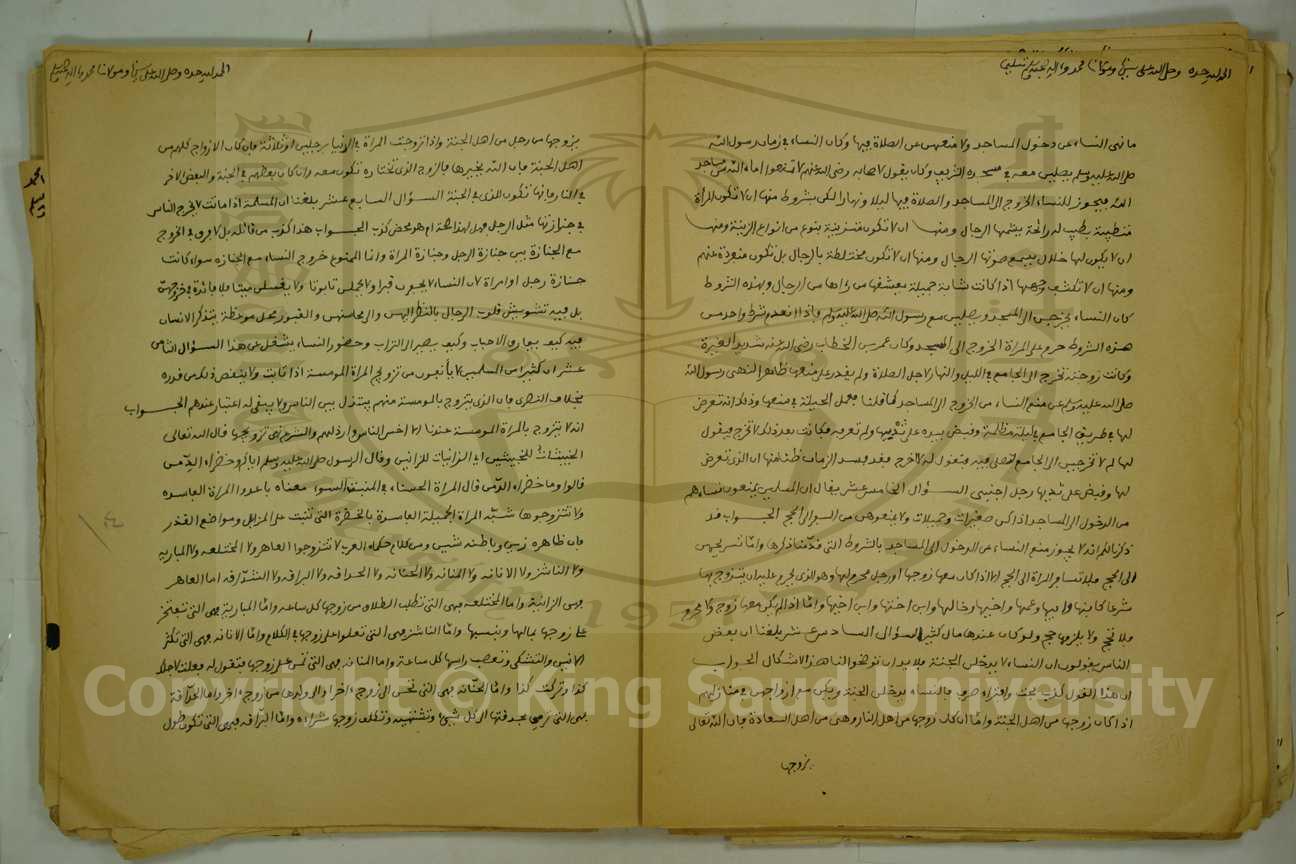 الحمد لله وحده وصلى الله على سيدنا ومولانا محمد وآله وصحبه وسلم
ما نهى النساء عن دخول المساجد ولا منعهن عن الصلاة فيها وكان النساء في زمان رسول الله
صلى الله عليه وسلم يصلين معه في مسجده الشريف وكان يقول لاصحابه رضى الله عنهم لا تمنعوا اماء الله من مساجد
الله فيجوز للنساء الخروج الى المساجد والصلاة فيها ليلا ونهارا لكن بشروط منها ان لا تكون المراة
متطيبة بطيب له رائحة يشمها الرجال ومنها ان لا تكون متزينة بنوع من انواع الزينة ومنها
ان لا يكون لها خلخال يسمع صوتها الرجال ومنها ان لا تكون مختلطة بالرجال بل تكون منفردة عنهم
ومنها ان لا تكشف وجهها اذا كانت شابة جميلة يعشقها من يراها من الرجال وبهذه الشروط
كان النساء يخرجن الى المسجد ويصلين مع رسول الله صلى الله عليه وسلم فاذا انعدم شرط واحد من
هذه الشروط حرم على المراة الخروج الى المسجد وكان عمر بن الخطاب رضى الله عنه شديد الغيرة
وكانت زوجته تخرج الى الجامع في الليل والنهار لاجل الصلاة ولم يقدر على منعها ظاهرا لنهى رسول الله
صلى الله عليه وسلم عن منع النساء من الخروج الى المساجد كما قلنا فعمل الحيلة في منعها وذلك انه تعرض
لها في طريق الجامع في ليلة مظلمة وقبض بيده على ثديها ولم تعرفه فكانت بعد ذلك لا تخرج فيقول
لها لم لا تخرجين الى الجامع تصلى فيه فتقول له لا اخرج فقد فسد الزمان ظنا منها ان الذى تعرض
لها وقبض على ثديها رجل اجنبى السـؤال الخامس عشر يقال ان المسلمين يمنعون نساءهم
من الدخول الى المساجد اذا كن صغيرات وجميلات ولا يمنعوهن من السوال الحج الجـواب قد
ذكرنا لكم انه لا يجوز منع النساء عن الدخول الى المساجد بالشروط التى قدمنا ذكرها واما تسريحهن
الى الحج فلا تسافر المراة الى الحج الا اذا كان معها زوجها او رجل محرم لها وهو الذى يحرم عليه ان يتزوج بها
شرعا كابنها وابيها وعمها واخيها وخالها وابن اختها وابن اخيها واما اذا لم يكن معها زوج ولا محرم
فلا تحج ولا يلزمها حج ولو كان عندها مال كثير السؤال السادس عشر بلغنا ان بعض
الناس يقولون ان النساء لا يدخلن الجنة فلا بد ان توضحوا لنا هذا الاشكال الجـواب
ان هذا القول كذب بحت وافتراء صرف فالنساء يدخلن الجنة ويكن مع ازواجهن في منازلهم
اذا كان زوجها من اهل الجنة واما ان كان زوجها من اهل النار وهى من اهل السعادة فان الله تعالى
يزوجها
الحمد لله وحده وصلى الله على سيدنا ومولانا محمد وآله وصحبه وسلم
يزوجها من رجل من اهل الجنة واذا تزوجت المراة في الدنيا برجلين او ثلاثة فان كان الازواج كلهم من
اهل الجنة فان الله يخيرها فالزوج الذى تختاره تكون معه وان كان بعضهم في الجنة والبعض الاخر
في النار فانها تكون للذى في الجنة السـؤال السابع عشر بلغنا ان المسلمة اذا ماتت لا يخرج الناس
في جنازتها مثل الرجل فهل لهذا صحة ام هو محض كذب الجـواب هذا كذب من قائله بل لا فرق في الخروج
مع الجنازة بين جنازة الرجل وجنازة المراة وانما الممنوع خروج النساء مع الجنازه سواء كانت
جنازة رجل او امراة لان النساء لا يحفرن قبرا ولا يحملن تابوتا ولا يغسلن ميتا فلا فائدة في خروجهن
بل فيه تشويش قلوب الرجال بالنظر اليهن والى محاسنهن والقبور محل موعظة يتذكر الانسان
فيه كيف يفارق الاحباب وكيف يصير الى التراب وحضور النساء يشغل عن هذا السـؤال الثامن
عشر ان كثيرا من المسلمين لا يأنفون من تزويج المراة المومسة اذا تابت ولا ينقص ذلك من قدره
بخلاف النصرى فان الذى يتزوج بالمومسة منهم يبتذل بين الناس ولا يبقى له اعتبار عندهم الجـواب
انه لا يتزوج بالمراة المومسة عندنا الا اخس الناس وارذلهم والشرع نهى تزويجها قال الله تعالى
الخبيثات للخبيثين اى الزانيات للزانين وقال الرسول صلى الله عليه وسلم اياكم وخضراء الدمن
قالوا وما خضراء الدمن قال المراة الحسناء في المنبت السوء معناه باعدوا المراة الفاسده
ولا تتزوجوها شبه المراة الجميلة الفاسدة بالخضرة التى تنبت على المزابل ومواضع القذر
فان ظاهره زين وباطنه شين ومن كلام حكماء العرب لا تتزوجوا العاهر ولا المختلعه ولا المباريه
ولا الناشز ولا الانانه ولا المنانه ولا الحنانه ولا الحداقه ولا البراقه ولا الشداقه اما العاهر
فهى الزانية واما المختلعه فهى التى تطلب الطلاق من زوجها كل ساعه واما المبارية فهى التى تفتخر
على زوجها بمالها وبنسبها واما الناشز فهى التى تعلوا على زوجها في الكلام واما الانانه فهى التى تكثر
الانين والتشكى وتعصب راسها كل ساعة واما المنانه فهى التى تمن على زوجها فتقول له فعلت لاجلك
كذا وتركت كذا واما الحنانه فهى التى تحن الى زوج اخر او الى ولدها من زوج اخر واما الحداقة
فهى التى ترمى بحدقتها الى كل شيئ وتشتهيه وتكلف زوجها شراءه واما البراقه فهى التى تكون طول
Copyright © King Saud University